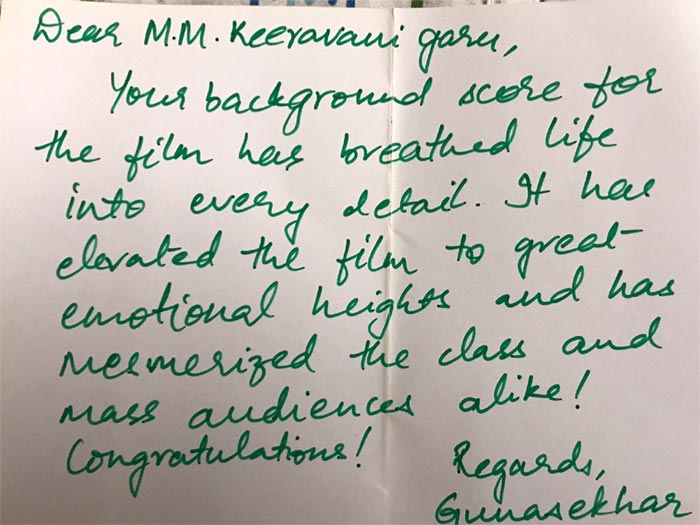 Dear M.M. Keeravani garu,
Your background score for
the film has breathed life
into every detail. It has
elevated the film to great
emotional heights and has
mesmerized the class and
mass audiences alike!
Congratulations!
Regards,
Gunasekhar